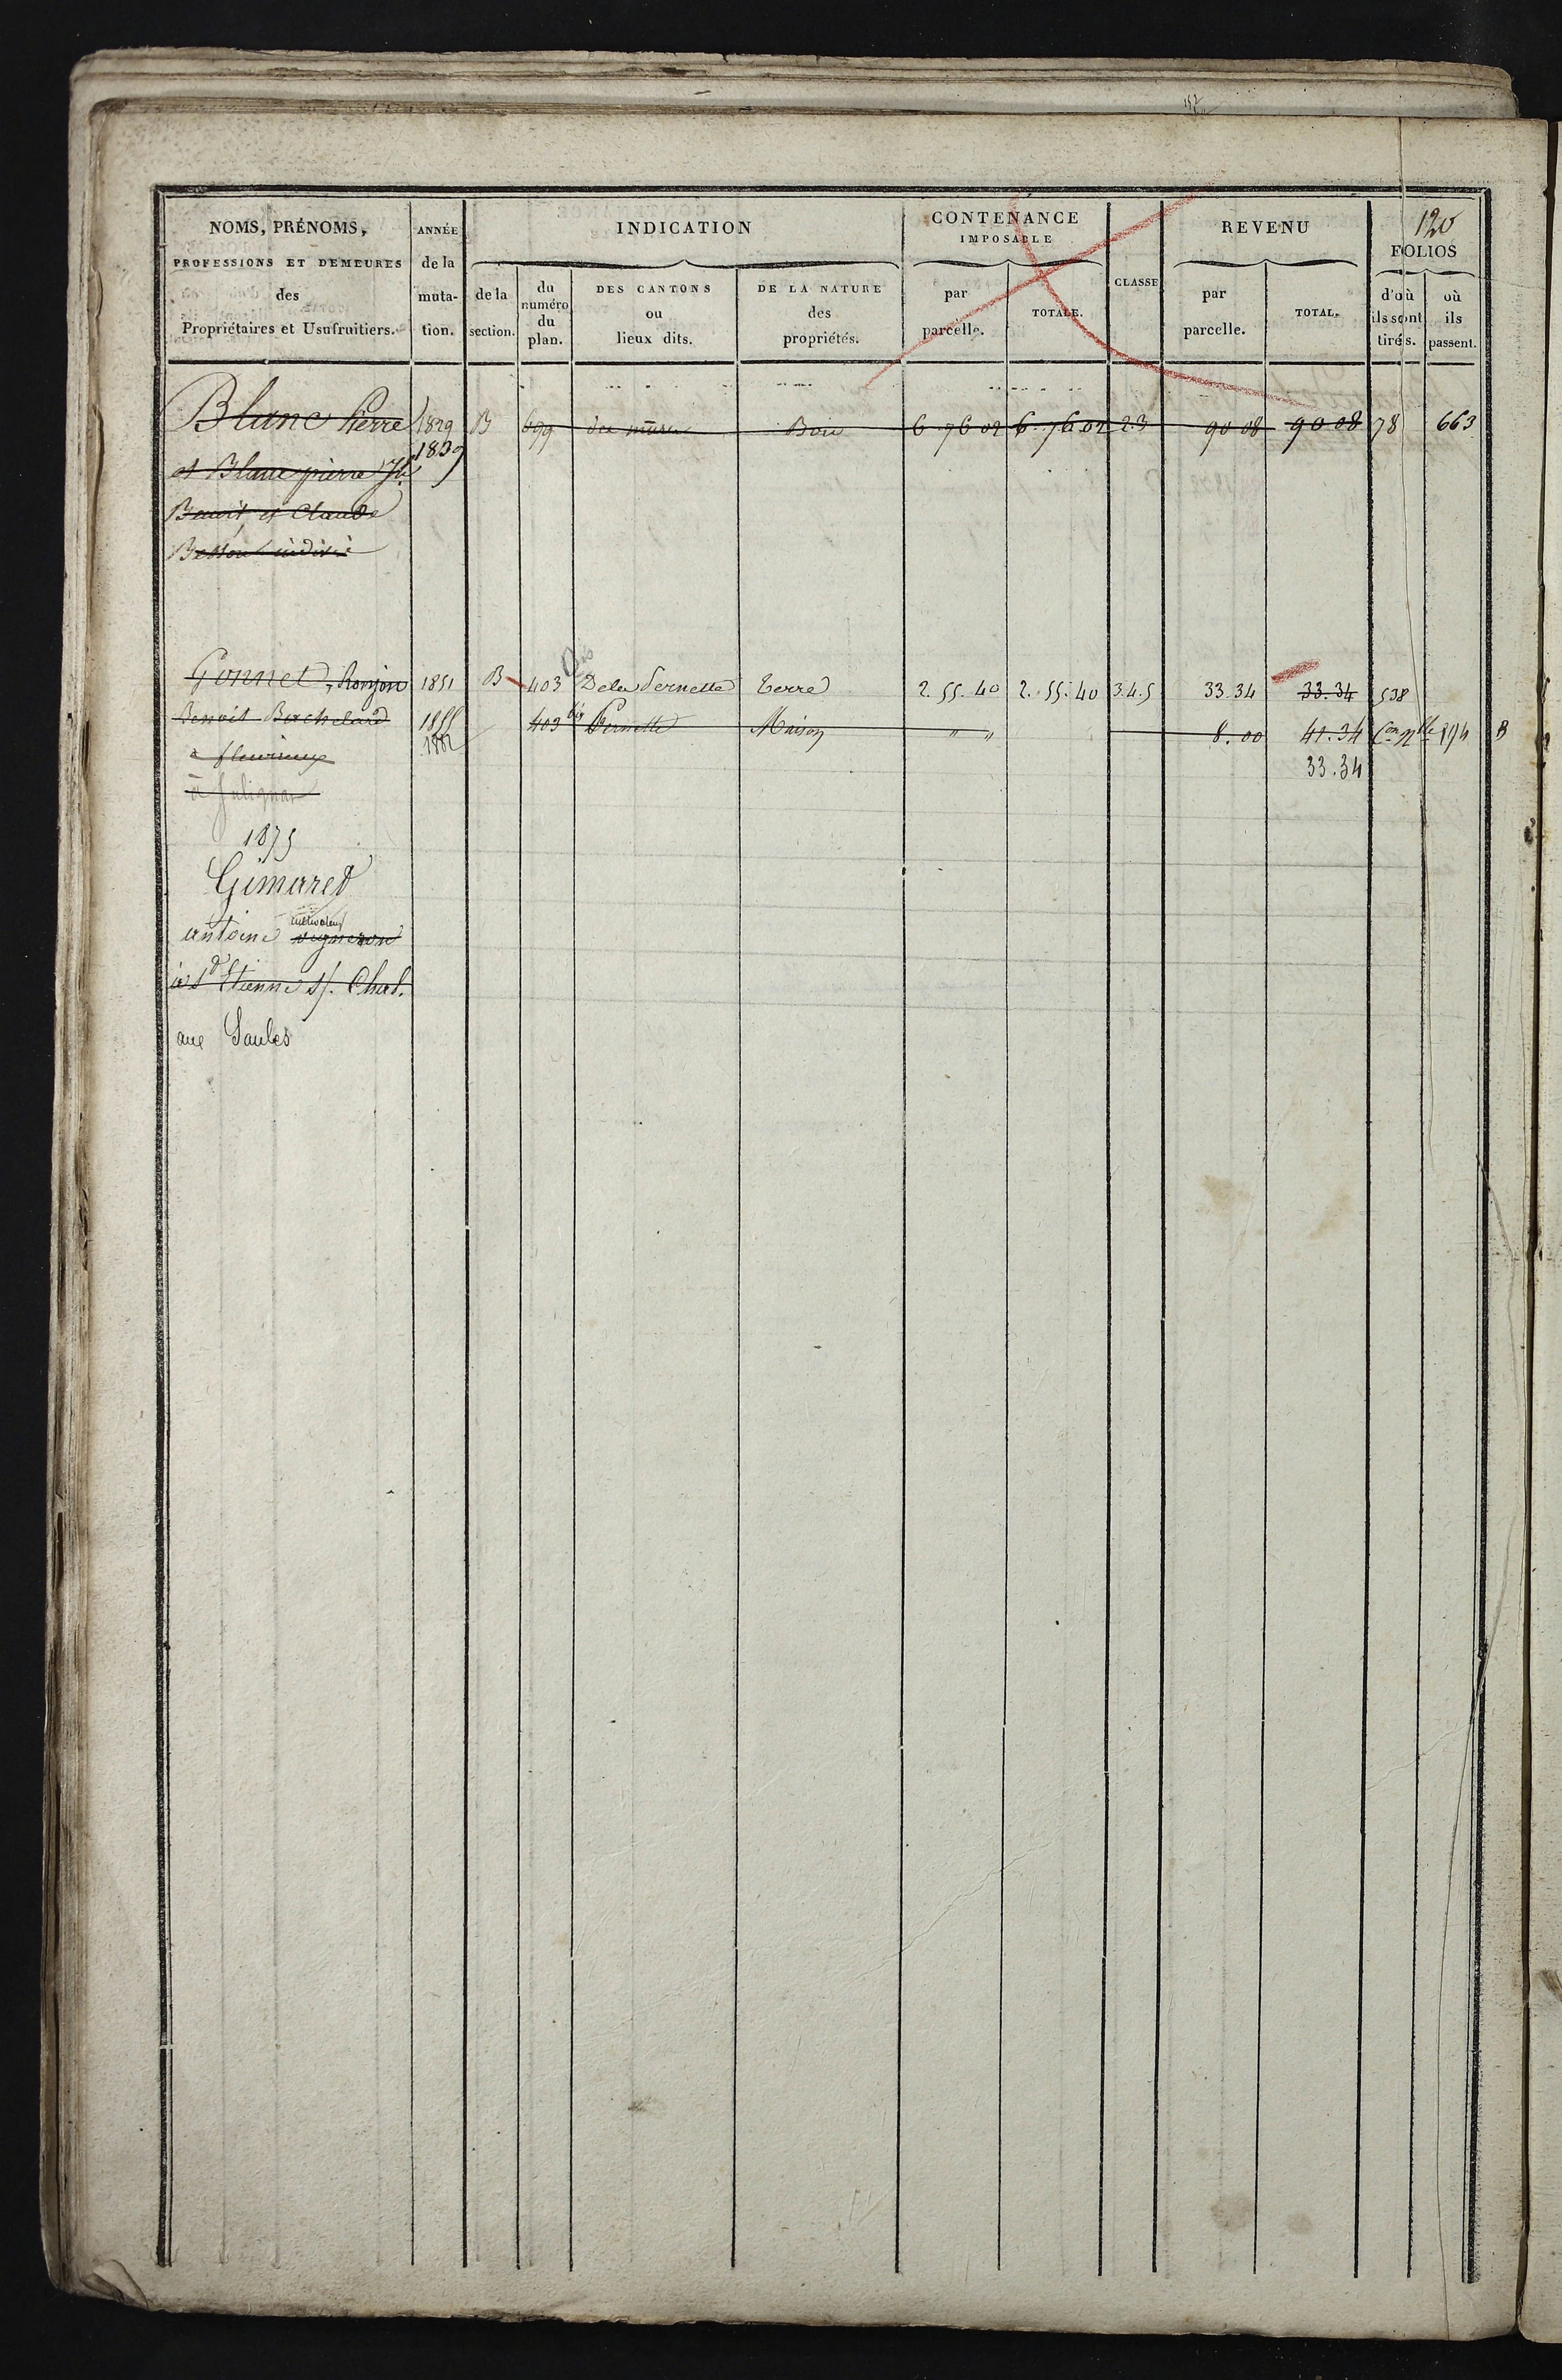 152
120
NOMS, PRÉNOMS, ANNÉE INDICATION CONTENANCE IMPOSABLE CLASSE REVENU FOLIOS
PROFESSIONS ET DEMEURES de la
des muta- de la du numéro du plan. DES CANTONS ou lieux dits. DE LA NATURE des propriétés. par parcelle. TOTALE. par parcelle. TOTAL. d'où ils sont tirés. où ils passent.
Propriétaires et Usufruitiers. tion. section.
Blanc Pierre 1829 B 699 du mure Bois 6 76 02 6 76 02 23 90 08 90 08 78 663
1839
et Blanc pierre
Benoit et Claude
Besson indivis
Gonnet, Ronjon 1851 B 403 De la Pernette Terre 2.55.40 2.55.40 3.4.5 33.34 33.34 538
Benoit Berchelard 1855 403 bis Pernette Maison " " 8.00 41.34 Con Nlle 894 B
à fleurieux 1882 33.34
à Juligna
1875
Gimaret
antoine vigneron cultivateur
à St Etienne s/. Chal.
aux Saules